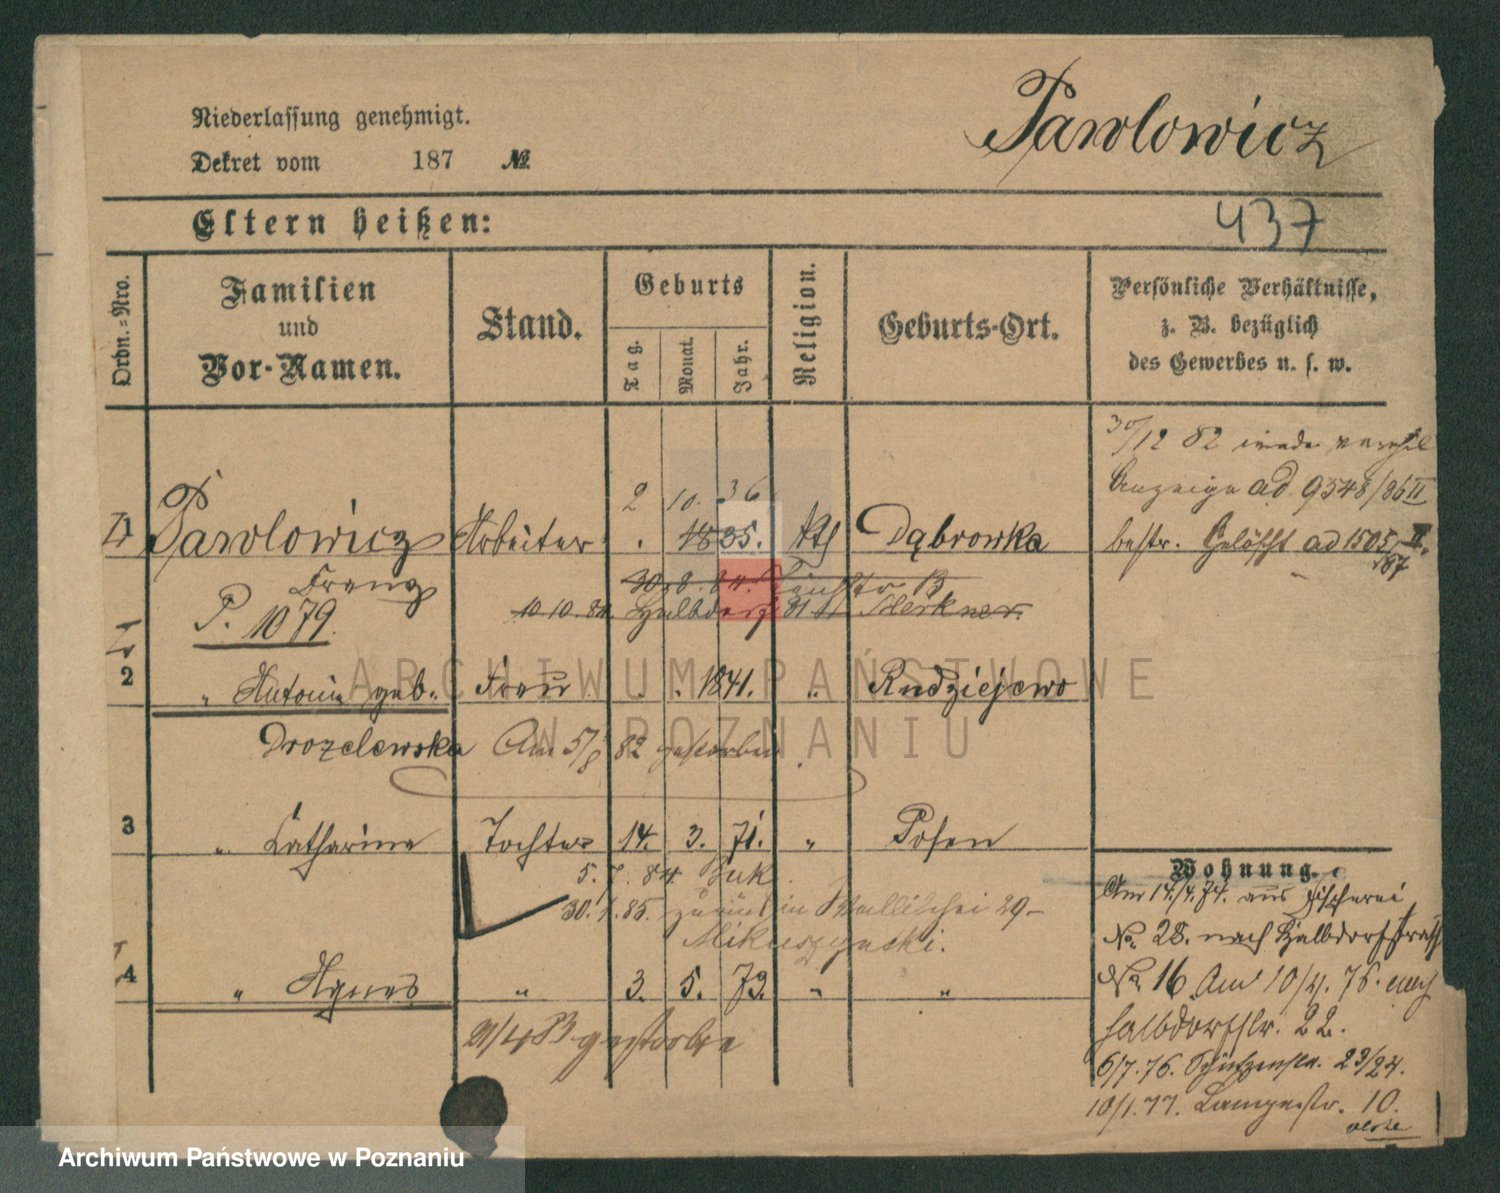 Niederlassung genehmigt.
Pawlowicz
Dekret vom 187 №
Eltern heißen:
437
Ordn.-Nro.
Familien
und
Vor-Namen.
Stand.
Geburts
Tag.
Monat.
Jahr.
Religion.
Geburts-Ort.
Persönliche Verhältnisse,
z. B. bezüglich
des Gewerbes u. s. w.
30/12 82
Anzeige ad 9548/86 II
2 10. 36
1 Pawlowicz Arbeiter . 1835. kth Dąbrowka
bestr. Gelöscht ad 1505/87 II.
Franz
30.8.84. B
P. 1079.
10.10.84. Halbdorf 31 Merkner.
2 " Antonie geb. Frau . . 1841. " Rudziejewo
Drozelewska Am 5/8 82 gestorben
3 " Catharina Tochter 14. 3. 71. " Posen
5.7.84. Buk.
30.1.85. zurück in Wallischei 29-
Mikuszynski.
4 " Agnes " 3. 5. 73. " "
gestorben
Wohnung.
Am 14./4.74. aus Fischerei
No. 28. nach Halbdorfstraße
No. 16. Am 10/4. 75. nach
Halbdorfstr. 22.
6/7.76. Schützenstr. 23/24.
10/1.77. Langestr. 10.
verte
ARCHIWUM PAŃSTWOWE
W POZNANIU
Archiwum Państwowe w Poznaniu